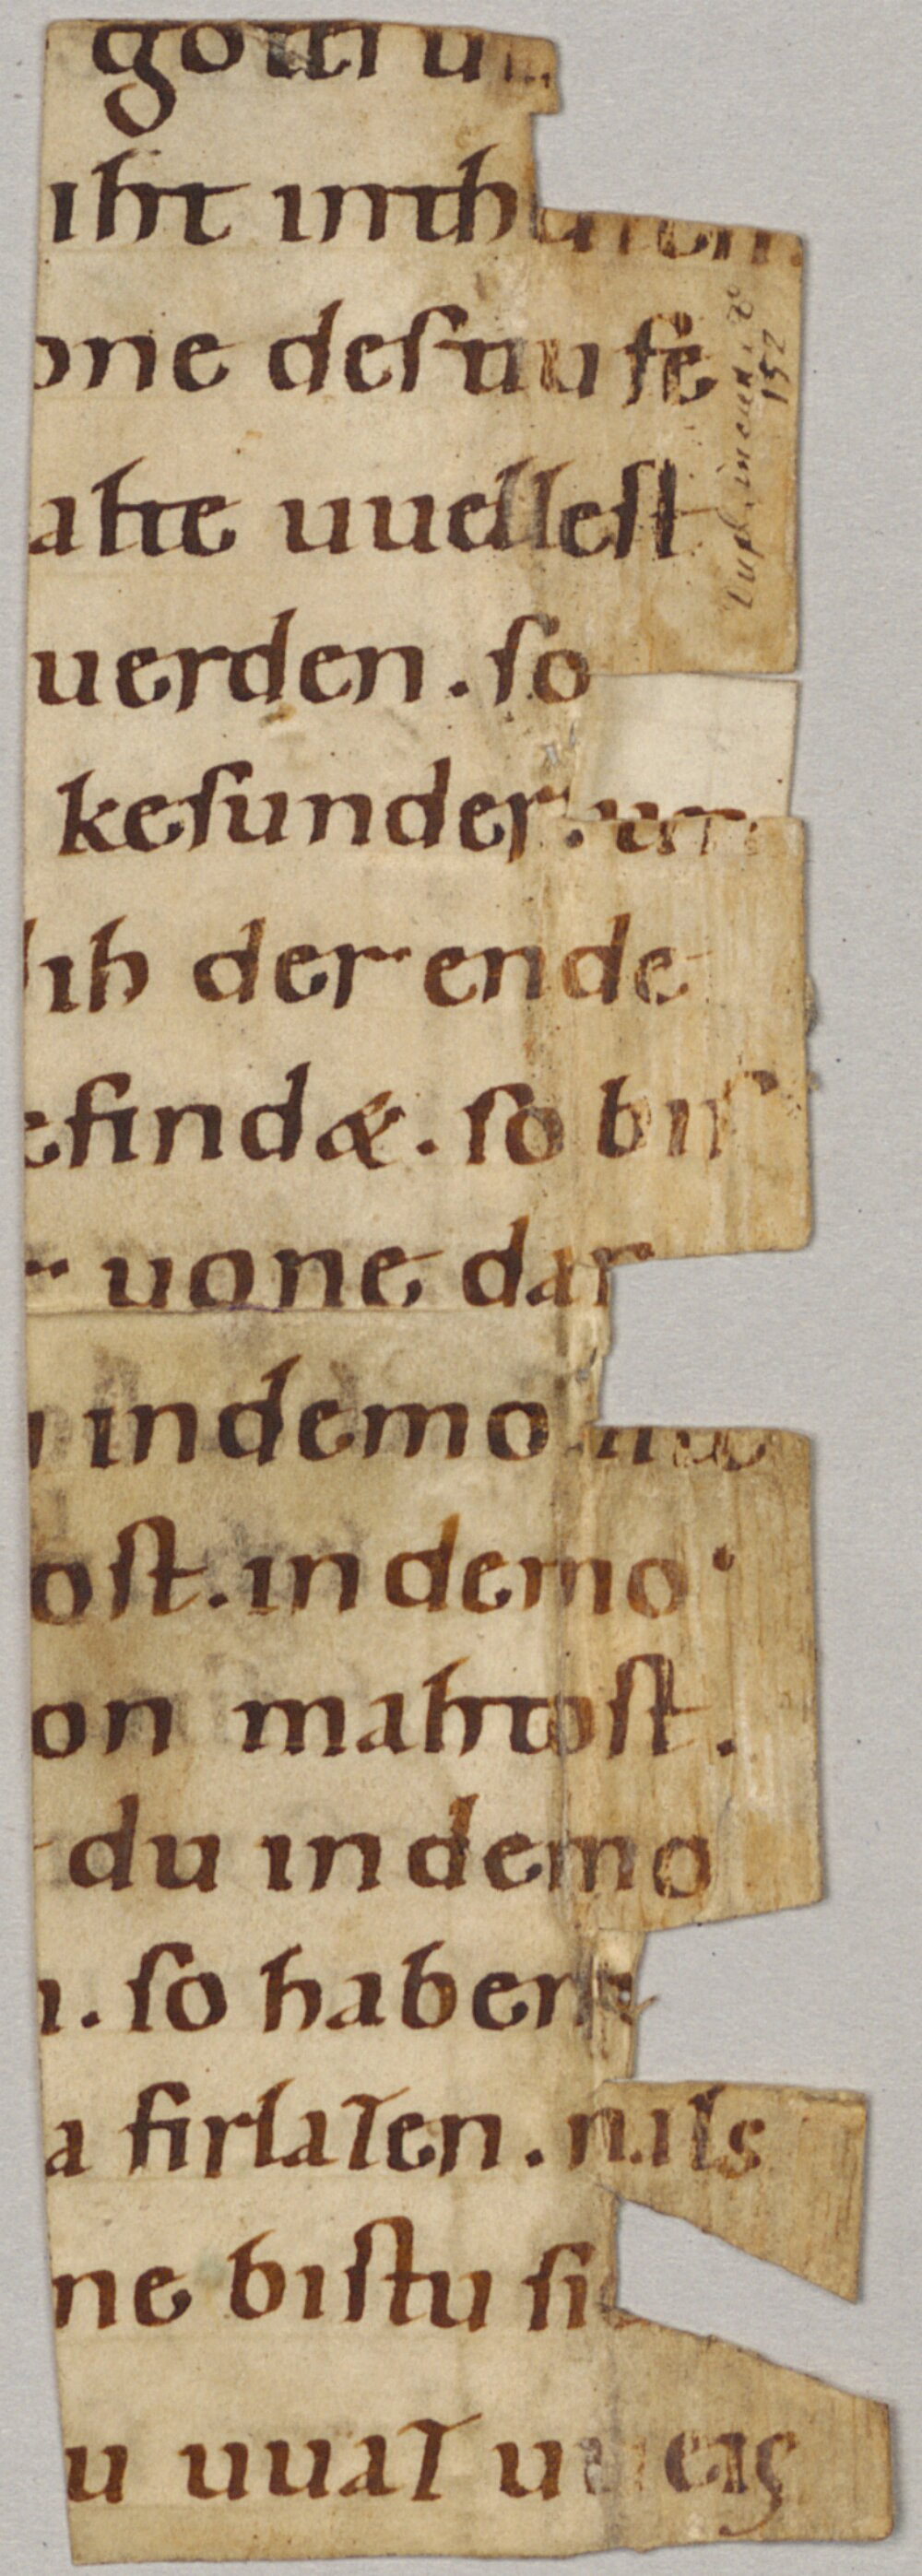 goteru
iht inthalten.
one desnu se
ahte uuellest
uerden. so
kesunder. uer
ih der ende
efindæ. so bis
r uone dar
indemo
ost. in demo
on mahtost.
du in demo
n. so haben
a firlaȥen. nals
ne bistu si
u uuaȥ u eis
152